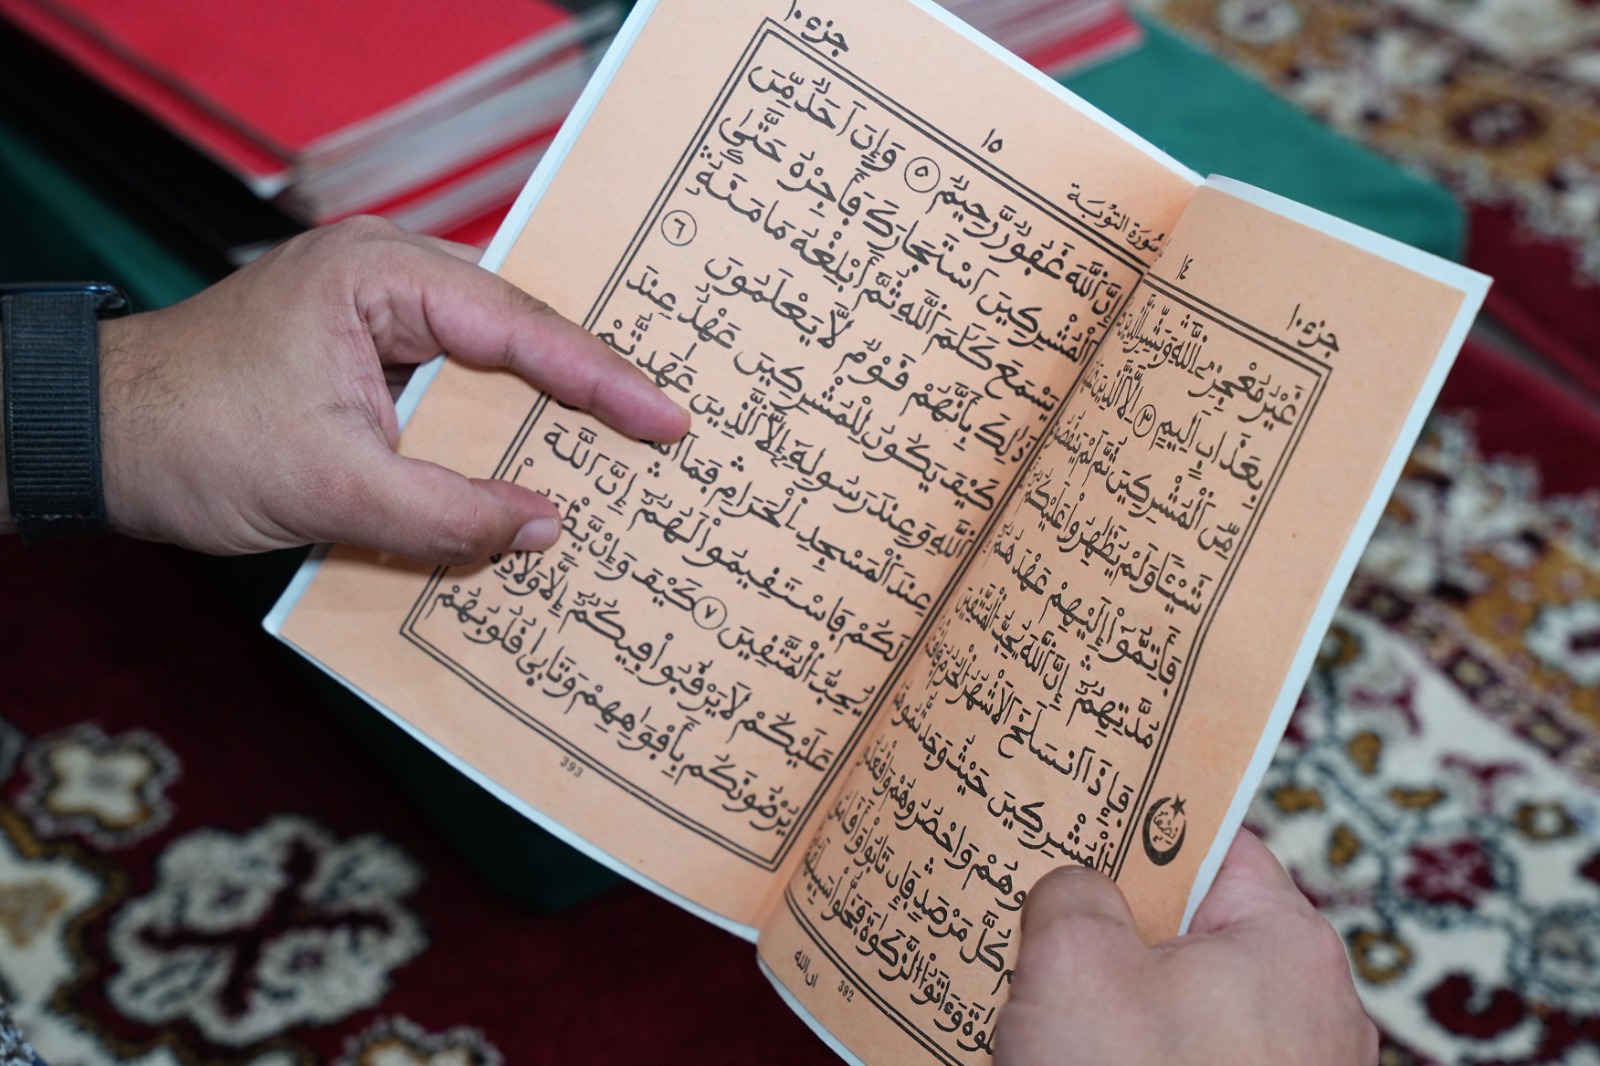 جزء ١٠
١٤
غَيْرُ مُعْجِزِے اِ۬للَّهِ وَبَشِّرِ اِ۬لذِينَ
بِعَذَابٍ اَلِيمٍ ٣ اِلَّا اَ۬لذِينَ
مِّنَ اَ۬لْمُشْرِكِينَ ثُمَّ لَمْ يَنقُصُوكُمْ
شَيْـٔٗا وَلَمْ يُظَٰهِرُواْ عَلَيْكُمُۥ
فَأَتِمُّوٓاْ إِلَيْهِمْ عَهْدَهُمُۥ
مُدَّتِهِمُۥٓ إِنَّ اَ۬للَّهَ يُحِبُّ اُ۬لْمُتَّقِينَ
فَإِذَا اَ۪نسَلَخَ اَ۬لَاشْهُرُ اُ۬لْحُرُمُ
اُ۬لْمُشْرِكِينَ حَيْثُ وَجَدتُّمُوهُمْ
وهُمْ وَاحْصُرُوهُمْ وَاقْعُدُواْ
كُلَّ مَرْصَدٖ فَإِن تَابُواْ وَأَقَامُواْ
لَوٰةَ وَءَاتَوُاْ اُ۬لزَّكَوٰةَ فَخَلُّواْ سَبِيلَهُمُۥٓ
نصف
ان الله
392
جزء ١٠
١٥
سورة التوبة
إِنَّ اَ۬للَّهَ غَفُورٞ رَّحِيمٞ ٥ وَإِنَ اَحَدٞ مِّنَ
اَ۬لْمُشْرِكِينَ اَ۪سْتَجَارَكَ فَأَجِرْهُ حَتَّىٰ
يَسْمَعَ كَلَٰمَ اَ۬للَّهِ ثُمَّ أَبْلِغْهُ مَامَنَهُۥ
ذَٰلِكَ بِأَنَّهُمْ قَوْمٞ لَّا يَعْلَمُونَ ٦
كَيْفَ يَكُونُ لِلْمُشْرِكِينَ عَهْدٌ عِندَ
اَ۬للَّهِ وَعِندَ رَسُولِهِۦٓ إِلَّا اَ۬لذِينَ عَٰهَدتُّمْ
عِندَ اَ۬لْمَسْجِدِ اِ۬لْحَرَامِ فَمَا اَ۪سْ
لَكُمْ فَاسْتَقِيمُواْ لَهُمُۥٓ إِنَّ اَ۬للَّهَ
يُحِبُّ اُ۬لْمُتَّقِينَ ٧ كَيْفَ وَإِنْ يَّظْهَرُواْ
عَلَيْكُمْ لَا يَرْقُبُواْ فِيكُمُۥٓ إِلّٗا وَلَا ذِمَّةٗ
يُرْضُونَكُم بِأَفْوَٰهِهِمْ وَتَابَىٰ قُلُوبُهُمْ
393